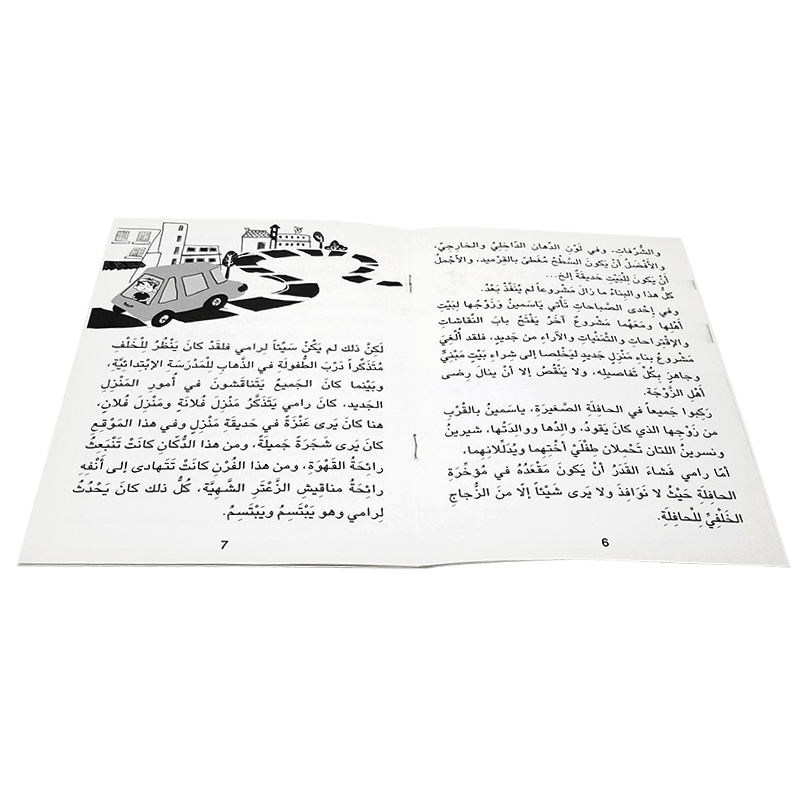 والشُّرُفاتِ، وفي لَوْنِ الدِّهانِ الدّاخِلِيِّ والخارِجِيِّ،
والأَفْضَلُ أَنْ يَكونَ السَّطْحُ مُغَطىً بالقِرْميد، والأَجْمَلُ
أَنْ يَكونَ لِلْبَيْتِ حَديقَةٌ إلخ...
كُلُّ هذا والبِناءُ ما زالَ مَشْروعاً لم يُنَفَّذْ بَعْدُ.
وفي إحْدى الصَّباحاتِ تَأتي ياسَمينُ وَزَوْجُها لِبَيْتِ
أَهْلِها ومَعَهُما مَشْروعٌ آخَرُ يَفْتَحُ بابَ النِّقاشاتِ
والاِقْتِراحاتِ والتَّمَنِّياتِ والآراءِ من جَديدٍ، فلقد أُلْغِيَ
مَشْروعُ بِناءِ مَنْزِلٍ جَديدٍ لِيَخْلُصا إلى شِراءِ بَيْتٍ مَبْنِيٍّ
وجاهِزٍ بِكُلِّ تَفاصيلِهِ، ولا يَنْقُصُ إلا أَنْ يَنالَ رِضى
أَهْلِ الزَّوْجَةِ.
رَكِبوا جَميعاً في الحافِلَةِ الصَّغيرَةِ، ياسَمينُ بالقُرْبِ
من زَوْجِها الذي كانَ يَقودُ، والِدُها ووالِدَتُها، شيرينُ
ونسرينُ اللتانِ تَحْمِلانِ طِفْلَيْ أُخْتِهِما ويُدَلِّلانِهِما،
أمّا رامي فَشاءَ القَدَرُ أَنْ يَكونَ مَقْعَدُهُ في مُؤَخِّرَةِ
الحافِلَةِ حَيْثُ لا نَوافِذَ ولا يَرى شَيْئاً إلّا منَ الزُّجاجِ
الخَلْفِيِّ لِلْحافِلَةِ.
6
لَكِنَّ ذلك لم يَكُنْ سَيِّئاً لِرامي فلقَدْ كانَ يَنْظُرُ لِلْخَلْفِ
مُتَذَكِّراً دَرْبَ الطُّفولَةِ في الذَّهابِ لِلْمَدْرَسَةِ الاِبْتِدائِيَّةِ،
وبَيْنَما كانَ الجَميعُ يَتَناقَشونَ في أُمورِ المَنْزِلِ
الجَديد، كانَ رامي يَتَذَكَّرُ مَنْزِلَ فُلانَةٍ ومَنْزِلَ فُلانٍ،
هنا كانَ يَرى عَنْزَةً في حَديقَةِ مَنْزِلٍ وفي هذا المَوْقِعِ
كانَ يَرى شَجَرَةً جَميلَةً، ومن هذا الدُّكّانِ كانَتْ تَنْبَعِثُ
رائِحَةُ القَهْوَةِ، ومن هذا الفُرْنِ كانَتْ تَتَهادى إلى أَنْفِهِ
رائِحَةُ مَناقيشِ الزَّعْتَرِ الشَّهِيَّة، كُلُّ ذلك كانَ يَحْدُثُ
لِرامي وهو يَبْتَسِمُ ويَبْتَسِمُ.
7